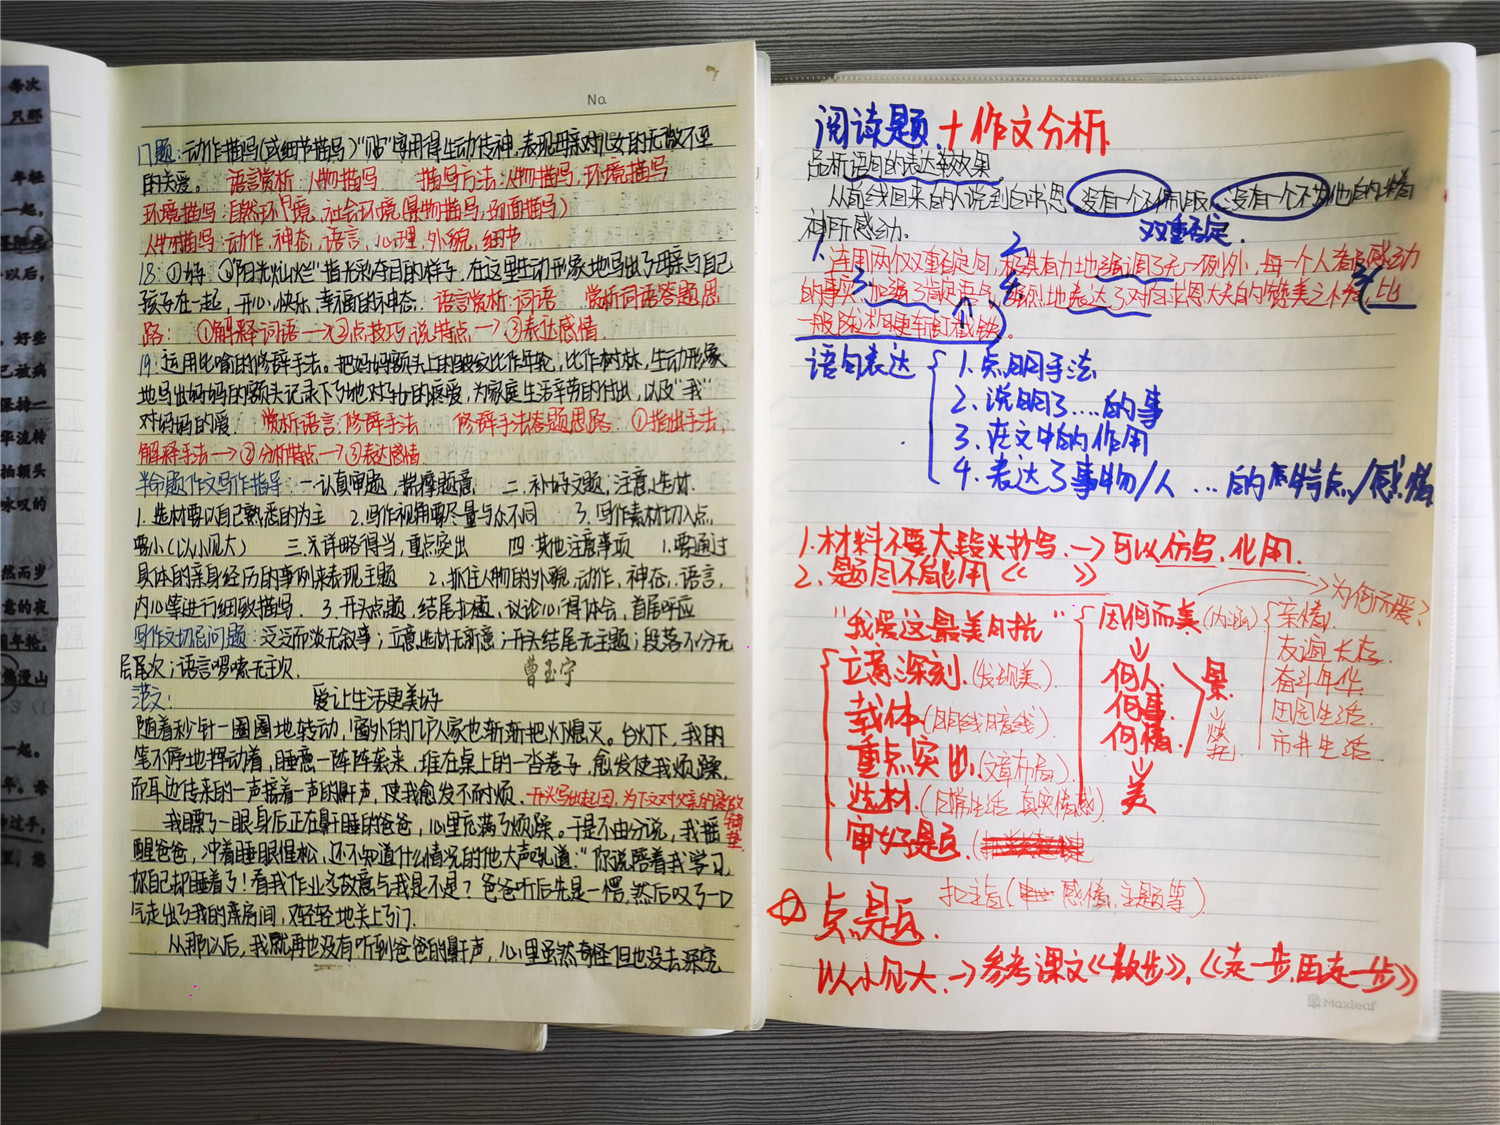 每次
只那
年轻
一起，
以后，
好些
已被病
华流转
拍额头
咏叹的
然而岁
意的夜
年轮，
像漫山
一起。
No.
门题：动作描写(或细节描写)"贴"字用得生动传神，表现母亲对儿女的无微不至
的关爱。 语言赏析：人物描写 描写方法：人物描写、环境描写
环境描写：自然环境、社会环境(景物描写，场面描写)
人物描写：动作、神态、语言、心理、外貌、细节
18：①好：②"阳光灿烂"指光彩夺目的样子，在这里生动形象地写出了母亲与自己
孩子在一起，开心、快乐、幸福的神态。 语言赏析：词语 赏析词语答题思
路： ①解释词语→②点技巧，说特点→③表达感情
19：运用比喻的修辞手法。把妈妈额头上的皱纹比作年轮，比作树林，生动形象
地写出妈妈的额头记录下了她对子女的疼爱，为家庭生活辛劳的付出，以及"我"
对妈妈的爱。 赏析语言：修辞手法 修辞手法答题思路：①指出手法，
解释手法→②分析特点→③表达感情
半命题作文写作指导：一.认真审题，揣摩题意 二.补好文题，注意选材
1.选材要以自己熟悉的为主 2.写作视角要尽量与众不同 3.写作素材切入点
要小(以小见大) 三.详略得当，重点突出 四.其他注意事项 1.要通过
具体的亲身经历的事例来表现主题 2.抓住人物的外貌，动作，神态，语言，
内心等进行细致描写 3.开头点题，结尾扣题，议论心得体会，首尾呼应
写作文切忌问题：泛泛而谈无叙事；立意选材无新意；开头结尾无主题；段落不分无
层次；语言啰嗦无主次. 曹玉宁
范文： 爱让生活更美好
随着秒针一圈圈地转动，窗外的几户人家也渐渐把灯熄灭。台灯下，我的
笔不停地挥动着，睡意一阵阵袭来，堆在桌上的一沓卷子，愈发使我烦躁，
而耳边传来的一声接着一声的鼾声，使我愈发不耐烦.
我瞟了一眼身后正在鼾睡的爸爸，心里充满了烦躁。于是不由分说，我摇
醒爸爸，冲着睡眼惺松，还不知道什么情况的他大声吼道："你说陪着我学习，
你自己却睡着了！看我作业多故意气我是不是？爸爸听后先是一愣，然后叹了一口
气走出了我的房间，又轻轻地关上了门.
从那以后，我就再也没有听到爸爸的鼾声，心里虽然奇怪但也没去深究
阅读题+作文分析
品析语句的表达效果
从前线回来的人说到白求恩，没有一个不佩服，没有一个不为他的精
神所感动. 双重否定.
1. 连用两个双重否定句，极具有力地强调了无一例外，每一个人都感动
语句表达
1.点明手法
2.说明了……的事
3.在文中的作用
4.表达了事物/人…的特点/感情
1.材料不要大段抄写.→可以仿写、化用.
2.题目不能用《 》
"我爱这最美时光" 因何而美(内涵) 为何而爱？
立意深刻.(发现美.) 何人 亲情.
载体.(明线暗线) 何事 友谊 长存
重点突出.(文章布局) 何情 奋斗年华
选材.(日常生活 真实情感) 美 田园生活
审好题. 市井生活
点题. 扣主旨( 感情、主题等)
以小见大.→参考课文《散步》,《走一步,再走一步》
Maxleaf